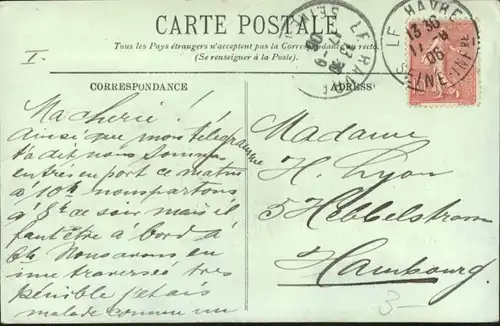 CARTE POSTALE
Tous les Pays étrangers n'acceptent pas la Correspondance au recto.
(Se renseigner à la Poste).
I.
CORRESPONDANCE
Ma Cherie!
Ainsi que mon télégramme
t'a dit, nous sommes
entrés en port ce matin
à 10h nous partons
à 8h ce soir mais il
faut être à bord à
6h Nous avons eu
une traversée très
pénible j'etais
malade comme un
ADRESSE
Madame
H. Lyon
5 Hebbelstrasse
Hambourg.
3-
LE HAVRE
13 30
11-9
06
SEINE-INFRE
LE HAVRE
13 30